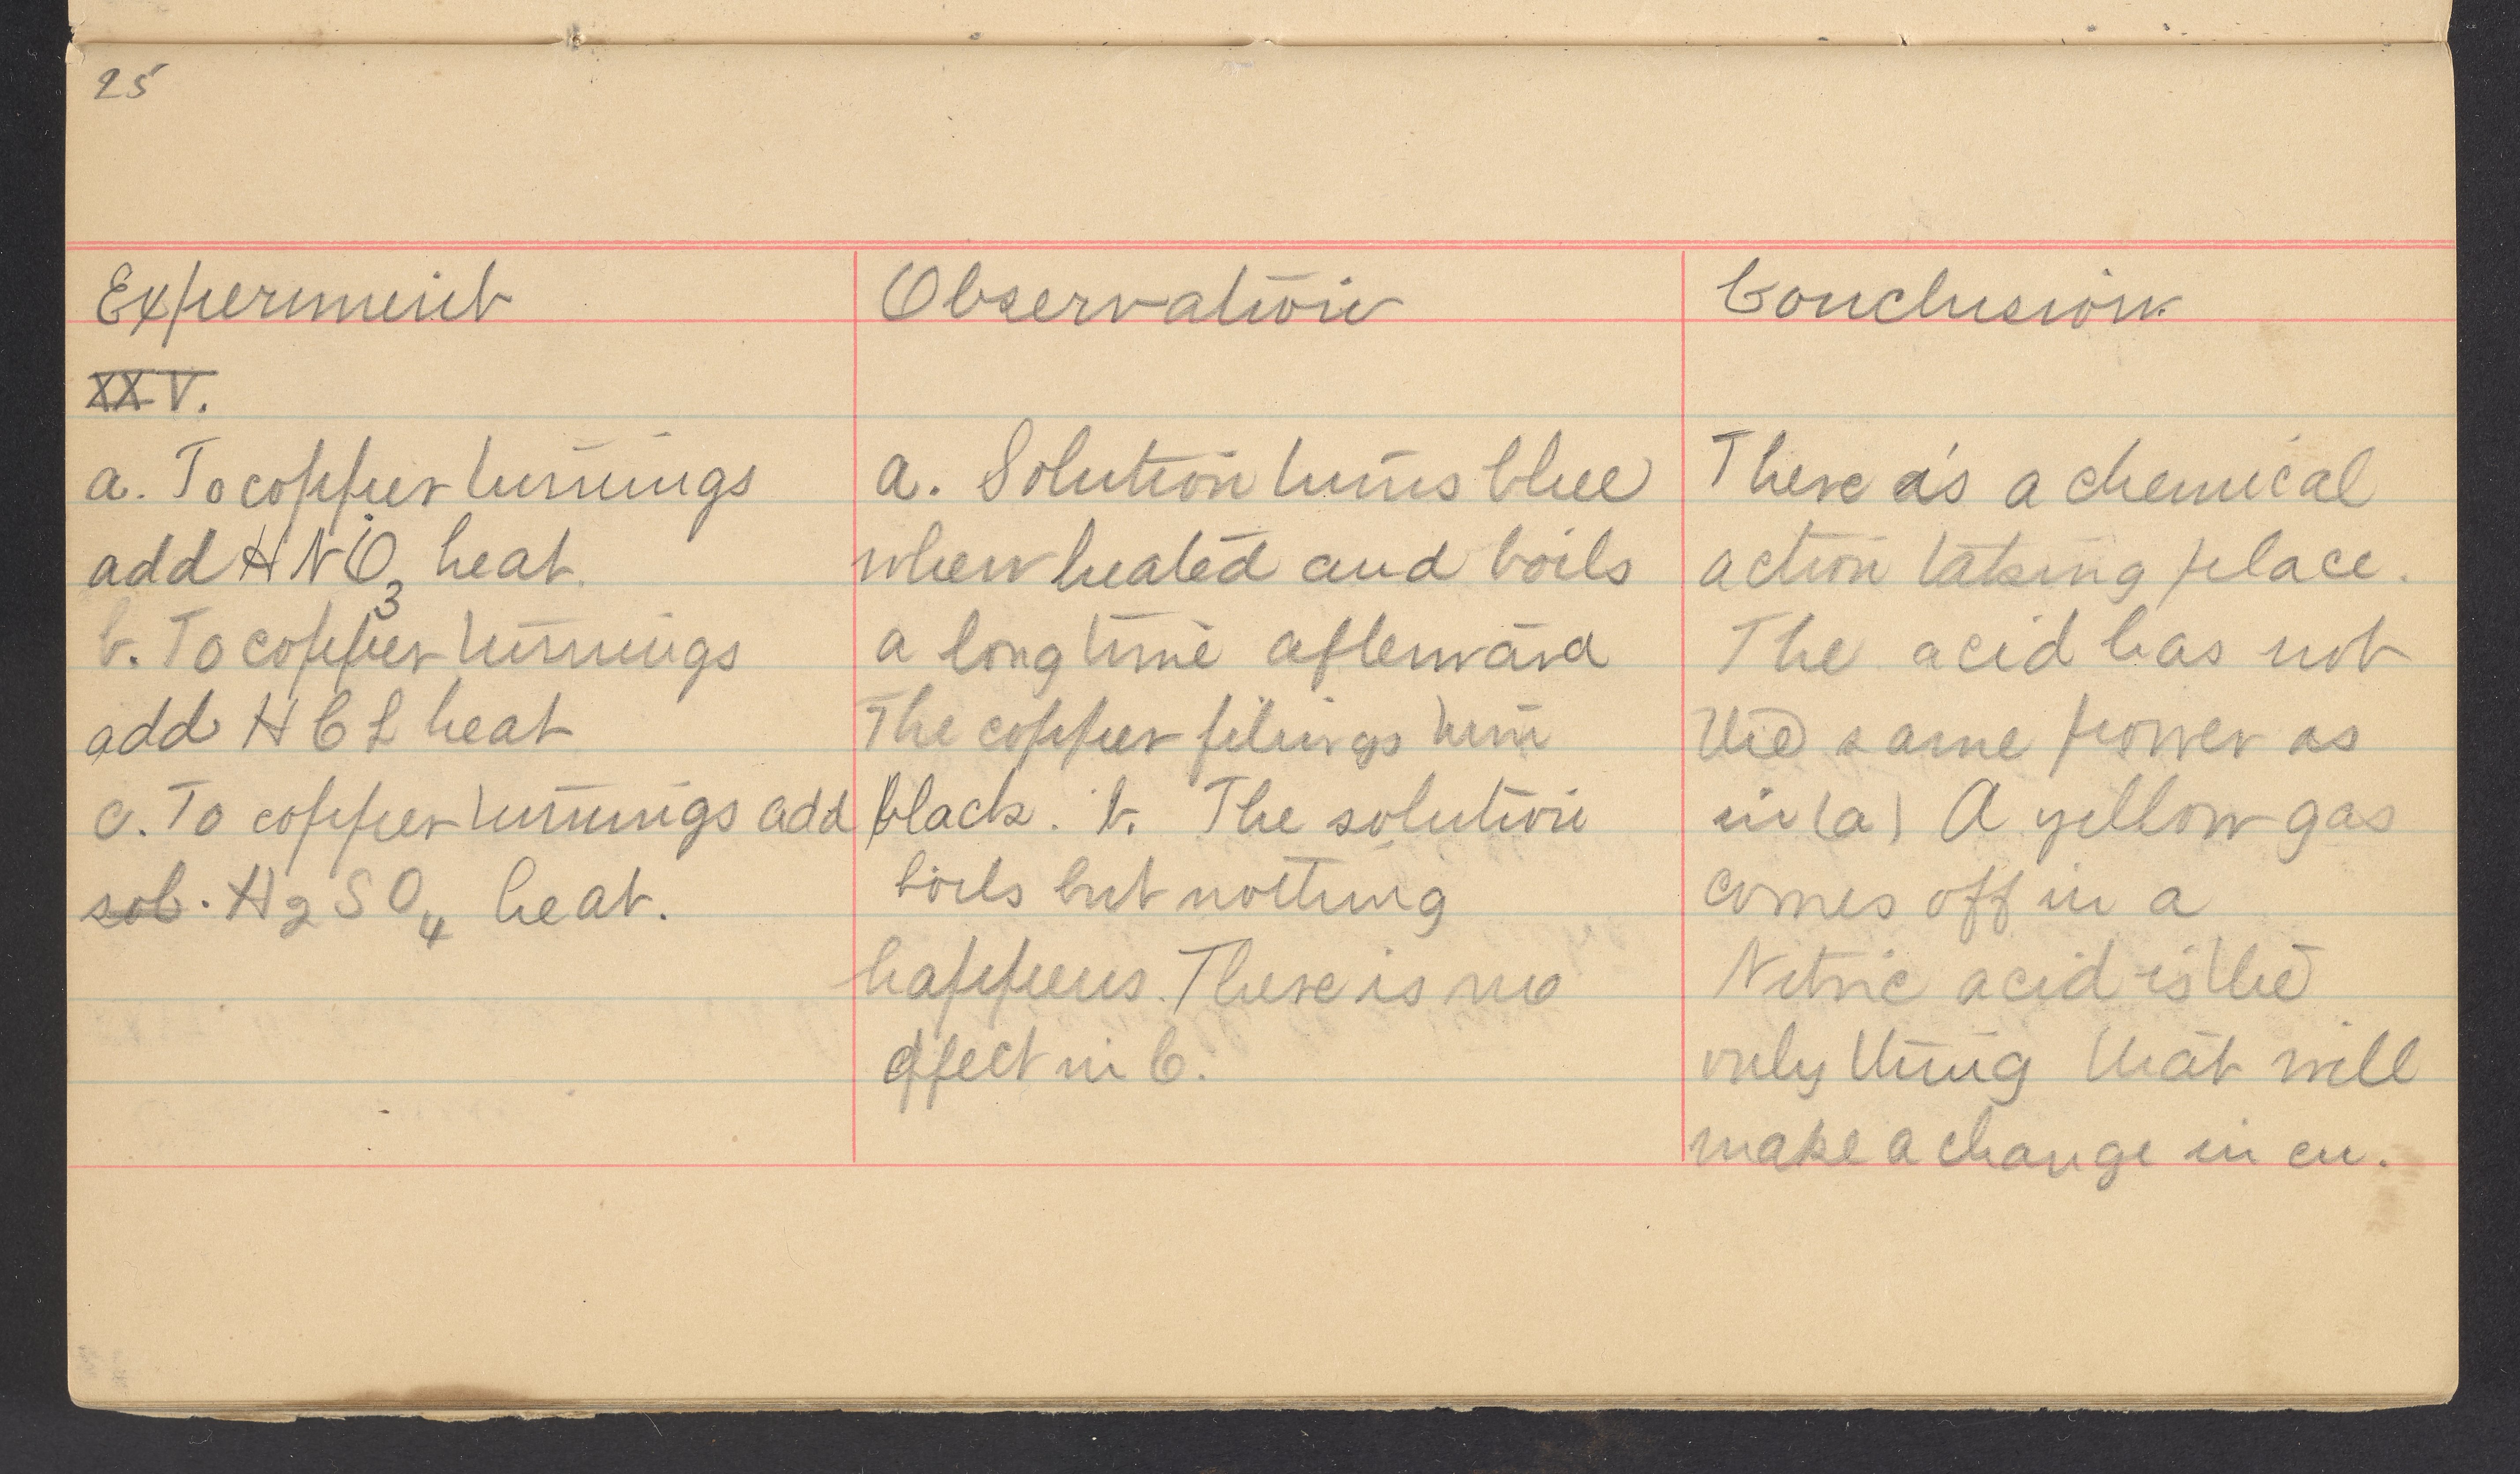 25
Experiment
XXV.
a. To copper turnings
add HNO3 heat.
b. To copper turnings
add HCl heat
c. To copper turnings add
sol. H2SO4 heat.
Observation
a. Solution turns blue
when heated and boils
a long time afterward
The copper filings turn
black. b. The solution
boils but nothing
happens. There is no
effect in C.
Conclusion.
There is a chemical
action taking place.
The acid has not
the same power as
in (a) A yellow gas
comes off in a
Nitric acid is the
only thing that will
make a change in cu.